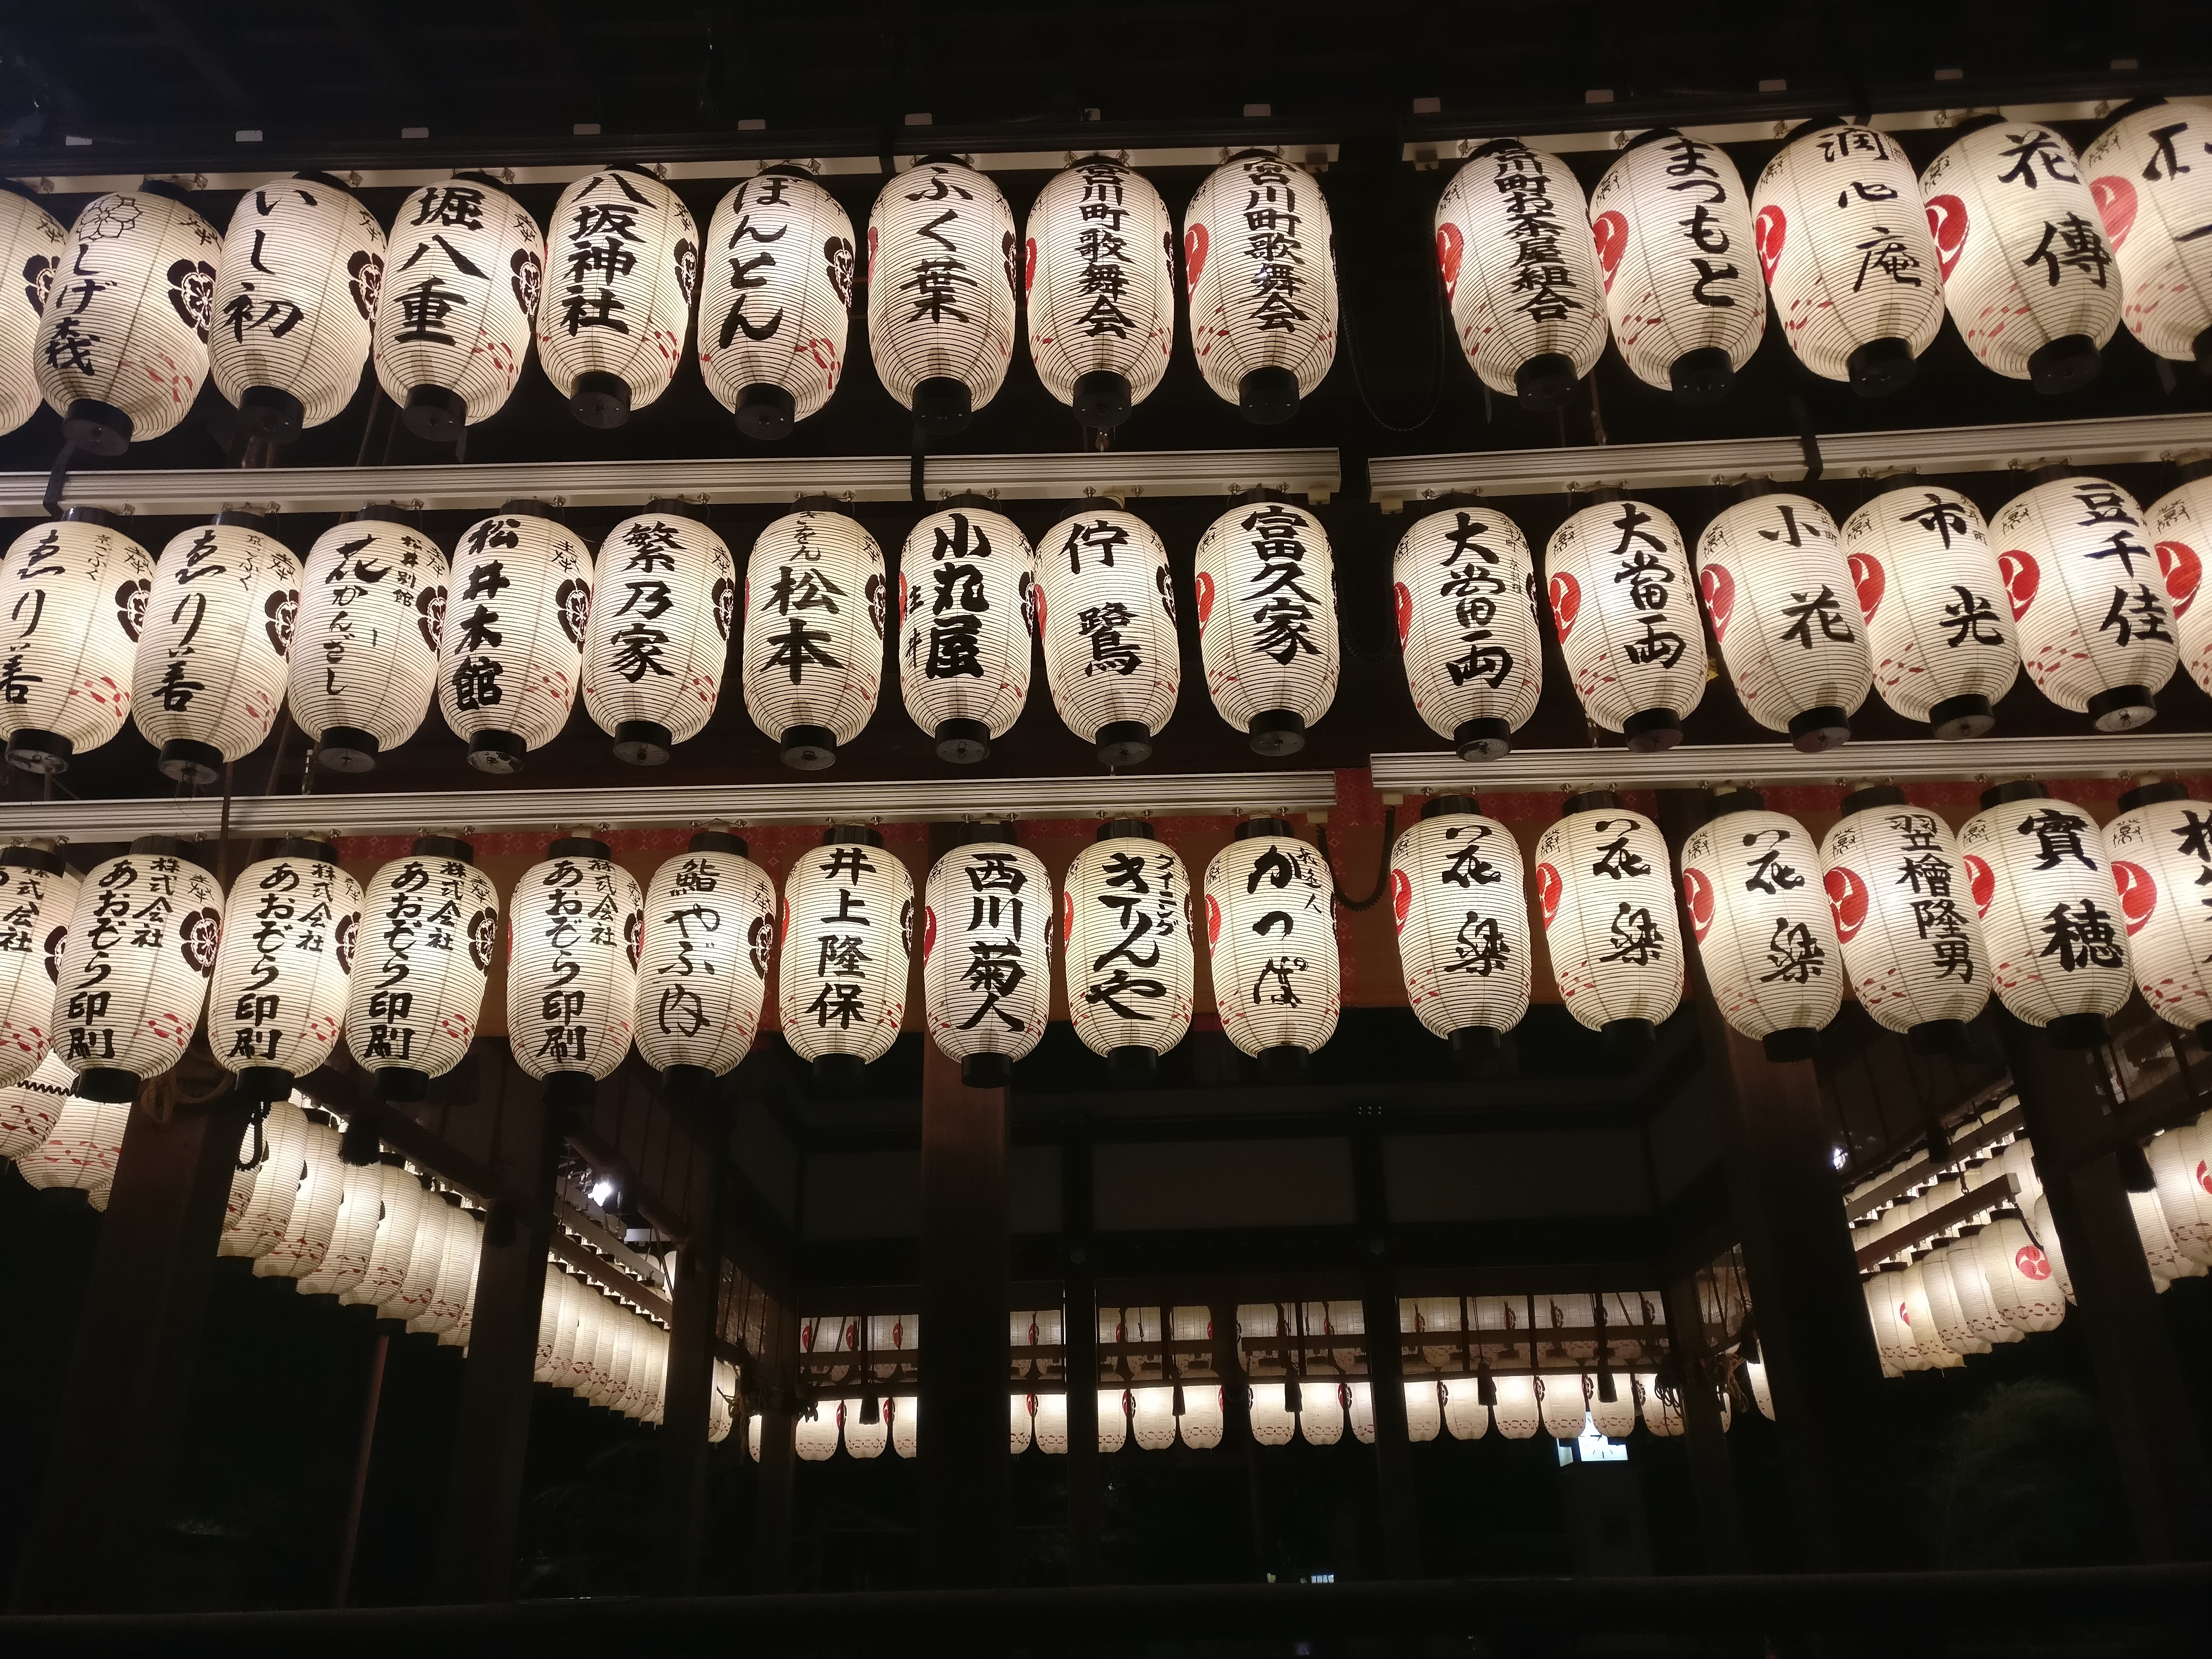 しげ森
いし初
堀八重
八坂神社
ぼんとん
ふく葉
宮川町歌舞会
宮川町歌舞会
宮川町お茶屋組合
まつもと
潤心庵
花傳
京ごふく
ゑり善
京ごふく
ゑり善
松井別館
花かんざし
松井本館
繁乃家
ぎをん
松本
小丸屋
住井
佇鷺
富久家
大當両
大當両
小花
市光
豆千佳
株式会社
株式会社
あおぞら印刷
株式会社
あおぞら印刷
株式会社
あおぞら印刷
株式会社
あおぞら印刷
鮨
やぶ内
井上隆保
西川菊人
ダイニング
きてんや
かっぱ
花樂
花樂
花樂
笠檜隆男
實穂